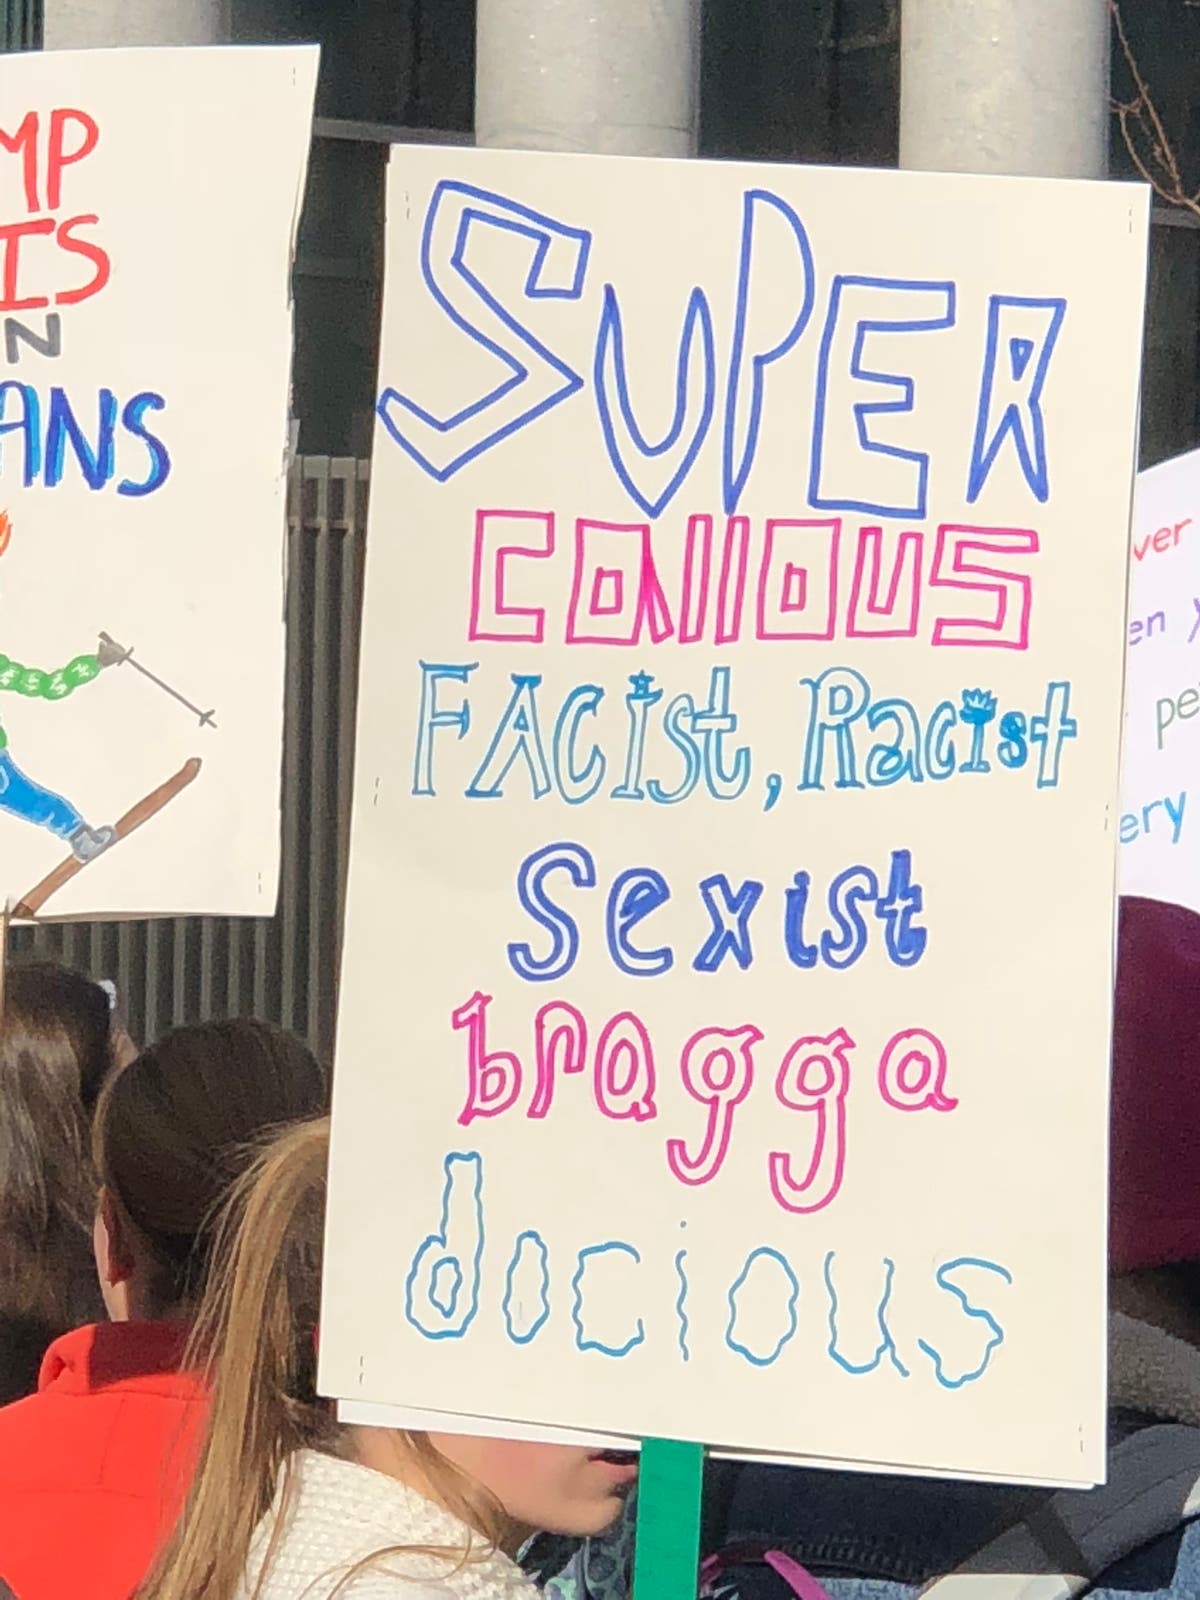 MP
IS
N
ANS
SUPER
Callous
FAcist, Racist
Sexist
bragga
docious
ver
en y
pe
ery